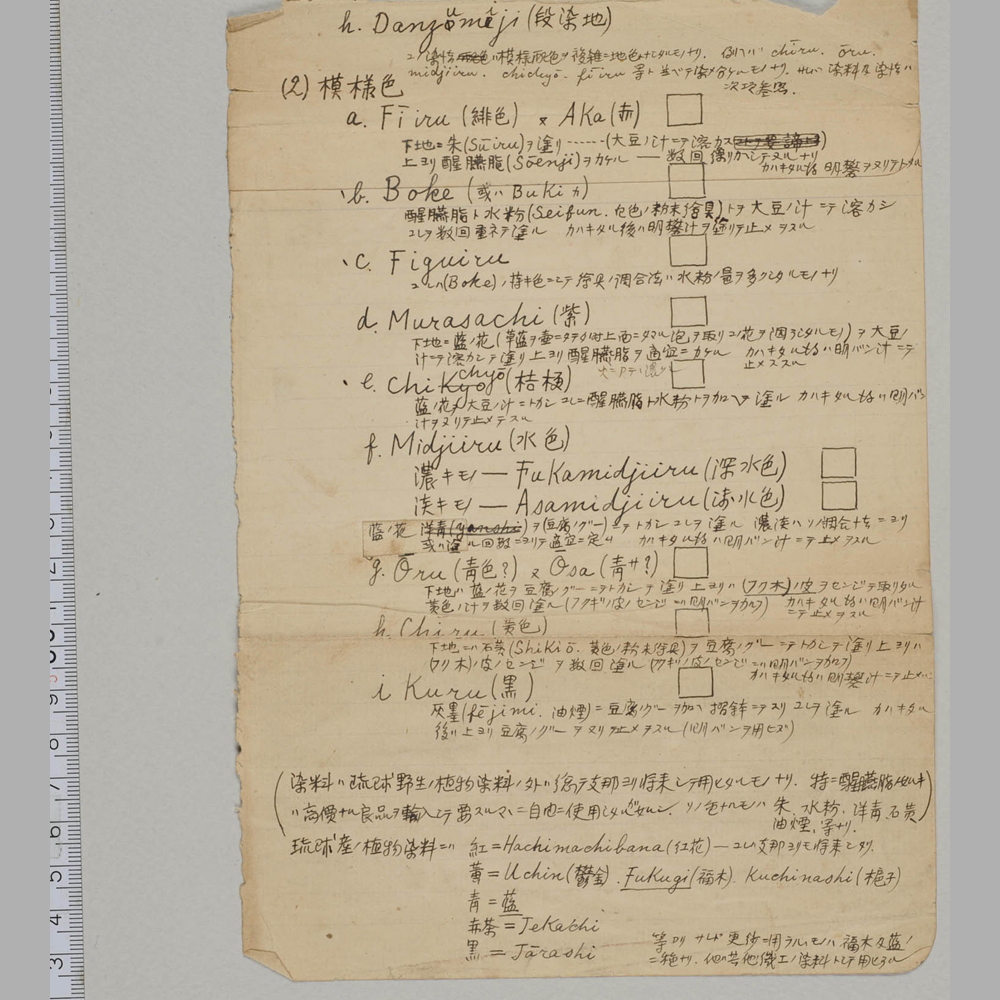 h. Danzōmēji (段染地)
コノ染法ハ模様雨色ヲ複雑ニ地色ナシタルモノナリ. 例ヘバ chīru. ōru.
midjiiru. chichyō. fīiru 等ト
次項参照.
(2) 模様色
a. Fīiru (緋色) × AKa (赤)
下地ニ朱(Sūiru)ヲ塗リ……(大豆ノ汁ニテ溶カス
上ヨリ醒臙脂(Sōenji)ヲカケル — 数回
カハキタル後 明礬ヲヌリテトメル
b. Boke (或ハ BuKi カ)
醒臙脂ト水粉(Seifun. 白色ノ粉末絵具)トヲ大豆ノ汁ニテ溶カシ
コレヲ数回重ネテ塗ル カハキタル後ハ明礬汁ヲ塗リテ止メヲスル
c. Figuiru
コレハ(Boke)ノ薄キ色ニシテ絵具ノ調合法ハ水粉ノ量ヲ多クシタルモノナリ
d. Murasachi (紫)
下地ニ藍ノ花(草藍ヲ壷ニタテル時上面ニタマル泡ヲ取リコノ花ヲ固ラシタルモノ)ヲ大豆ノ
汁ニテ溶カシテ塗リ上ヨリ醒臙脂ヲ適宜ニカケル カハキタル後ハ明バン汁ニテ
止メヲスル
e. ChiKyō (桔梗)
chyō
藍ノ花ヲ大豆ノ汁ニトカシコレニ醒臙脂ト水粉トヲ加ヘテ塗ル カハキタル後ハ明バン
汁ヲヌリテ止メヲスル
f. Midjiiru (水色)
濃キモノ — Fukamidjiiru (深水色)
淡キモノ — Asamidjiiru (淡水色)
藍ノ花 洋青(yanshi)ヲ(豆腐ノグー)ニテトカシコレヲ塗ル 濃淡ハソノ調合ナセニヨリ
或ハ塗ル回数ニヨリテ適宜ニ定ム カハキタル後ハ明バン汁ニテ止メヲスル
g. Ōru (青色?) × Ōsa (青サ?)
下地ハ藍ノ花ヲ豆腐ノグーニテトカシテ塗リ上ヨリハ(フク木)ノ皮ヲセンジテ取リタル
黄色ノ汁ヲ数回塗ル(フクギノ皮ノセンジニハ明バンヲカル) カハキタル後ハ明バン汁
ニテ止メヲスル
h. Chīru (黄色)
下地ニハ石黄(Shikiō. 黄色ノ粉末絵具)ヲ豆腐ノグーニテトカシテ塗リ上ヨリハ
(フク木)ノ皮ノセンジヲ数回塗ル(フクギノ皮ノセンジニハ明バンヲカル)
カハキタル後ハ明礬汁ニテ止メ
i Kuru (黒)
灰墨(fējimi. 油煙)ニ豆腐ノグーヲ加ヘ摺鉢ニテスリコレヲ塗ル カハキタル
後ハ上ヨリ豆腐ノグーヲヌリ止メヲスル(明バンヲ用ヒズ)
(染料ハ琉球野生ノ植物染料ノ外ハ総テ支那ヨリ将来シテ用ヒタルモノナリ. 特ニ醒臙脂ノ如キ
ハ高價ナル良品ヲ輸入シテ 自由ニ使用シタルガ如シ. ソノ他ナルモノハ朱. 水粉. 洋青. 石黄
油煙. 等ナリ.)
琉球産ノ植物染料ニハ 紅=Hachimachibana (紅花) — コレハ支那ヨリモ将来シタリ.
黄=Uchin (鬱金). FuKugi (福木). Kuchinashi (梔子)
青=藍
赤茶=Tekachi
黒=Tārashi
等アリ サレド更紗ニ用ヰルモノハ福木及藍ノ